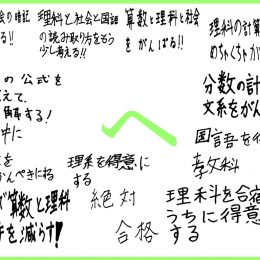 会の暗記
る!!
理科と社会と国語
の読み取り方をもう
少し考える!!
算数と理科と社会
をがんばる!!
理科の計算
めちゃくちゃが
の公式を
えて、
解する!
中に
分数の計
文系をがん
へ
国語を得
を
がんぺきにね
理系を得意に
する
理科を合宿
うちに得意
する
算数と理科
手を減らす!
絶対
合格